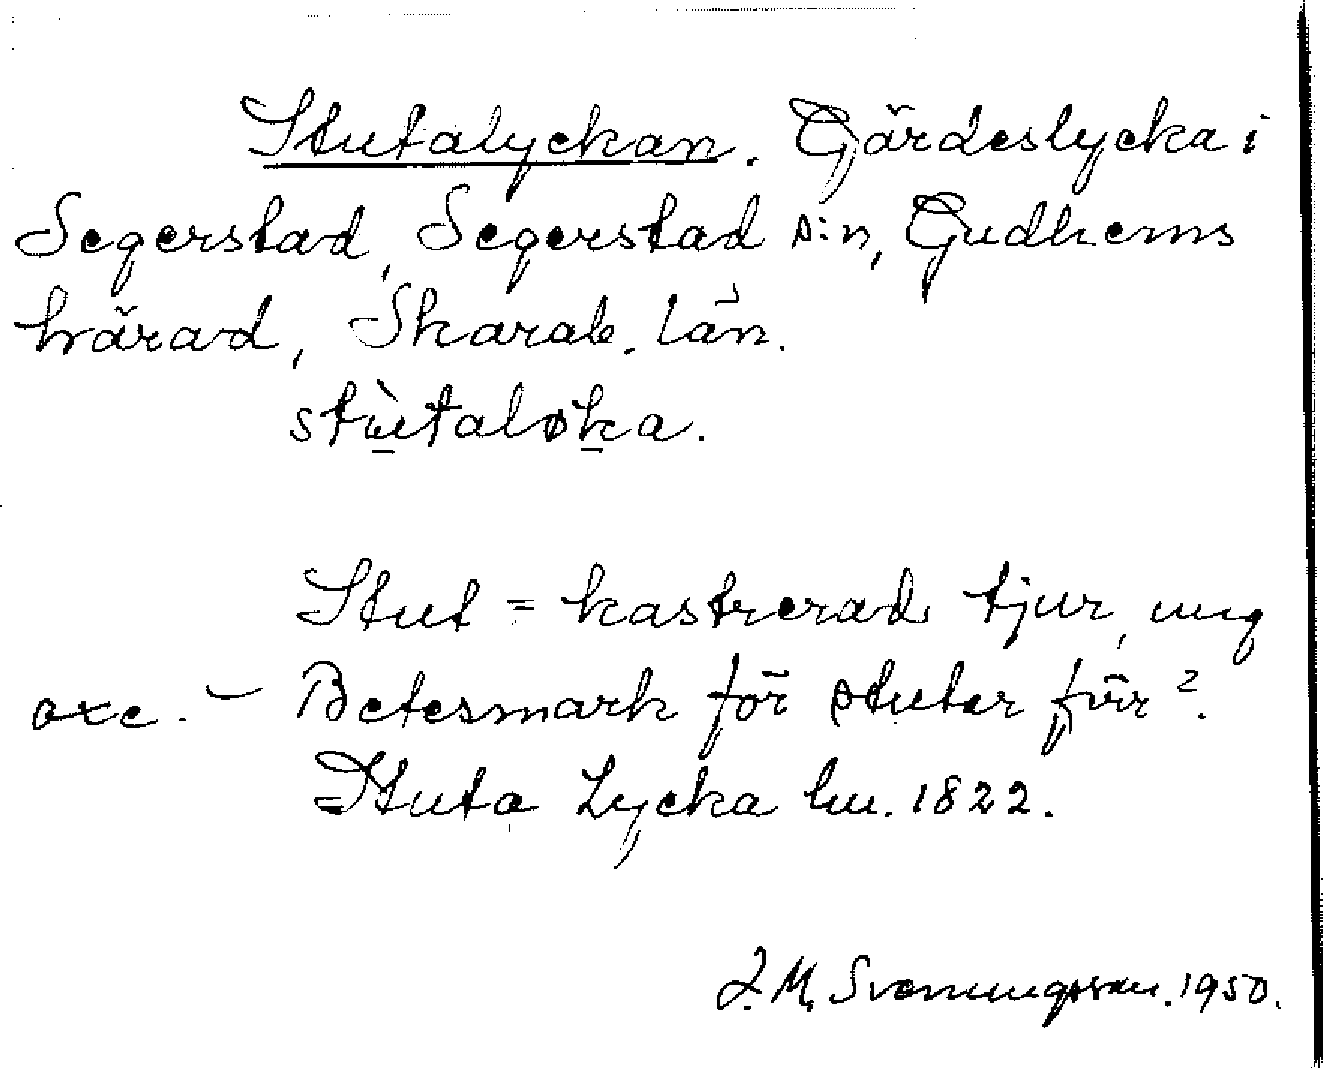 Stutalyckan. Gärdeslycka i
Segerstad, Segerstad s:n, Gudhems
härad, Skarab. län.
stùtaløka.
Stut = kastrerad tjur, ung
oxe. - Betesmark för stutar förr?
Stuta Lycka lm. 1822.
J. M. Svenningsson. 1950.